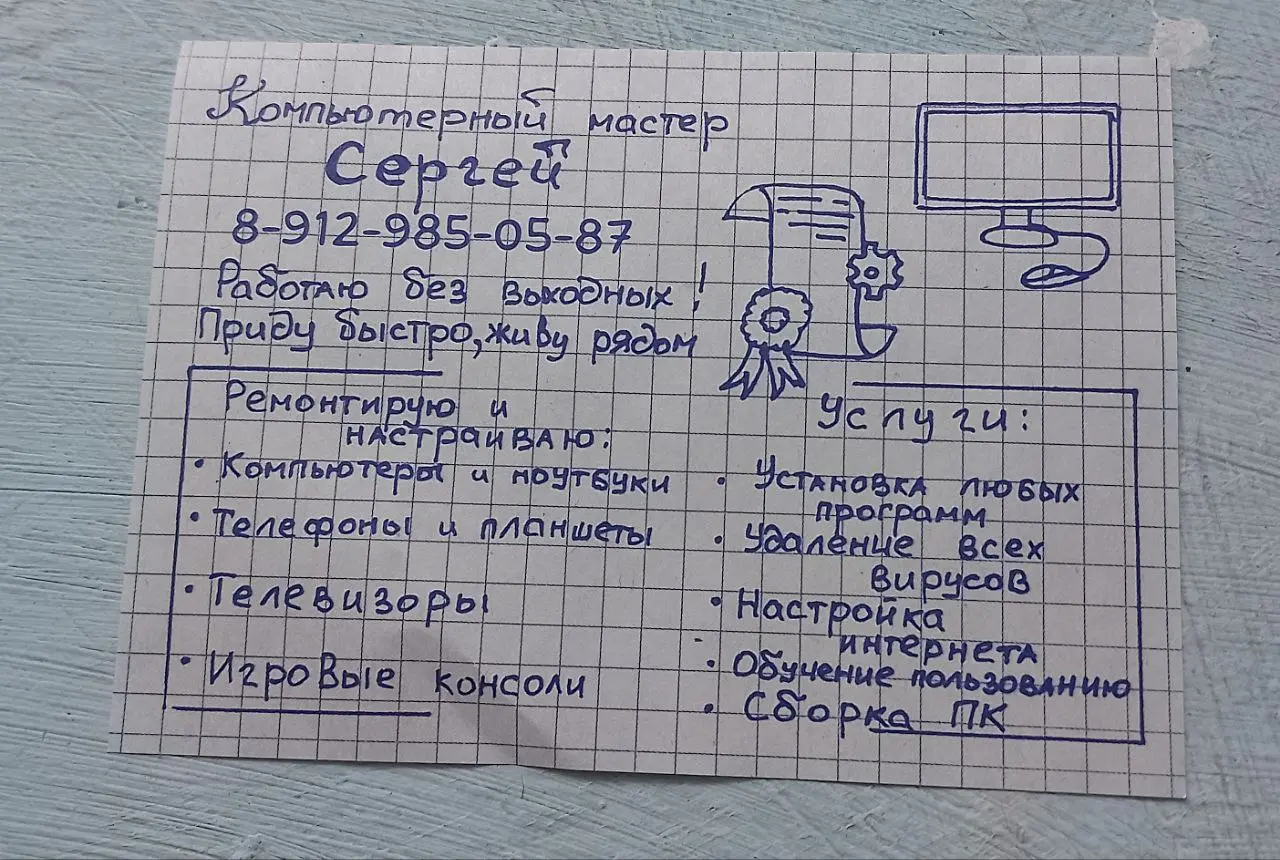 Компьютерный мастер
Сергей
8-912-985-05-87
Работаю без выходных!
Приду быстро, живу рядом
Ремонтирую и
настраиваю:
• Компьютеры и ноутбуки
• Телефоны и планшеты
• Телевизоры
• Игровые консоли
Услуги:
• Установка любых
программ
• Удаление всех
вирусов
• Настройка
интернета
• Обучение пользованию
• Сборка ПК